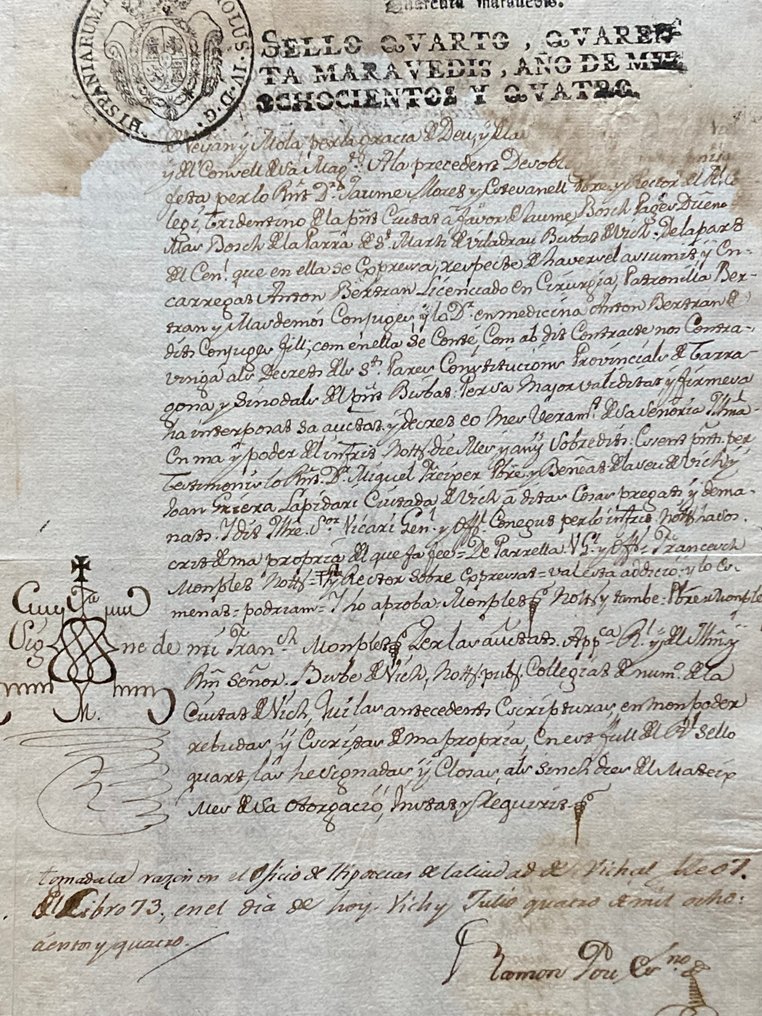 Quarenta maravedis.
HISPANIARUM CAROLUS IV D G
SELLO QVARTO, QVAREN
TA MARAVEDIS, AÑO DE MIL
OCHOCIENTOS Y QVATRO.
Veyan y Mola per la gracia de Deu, y
y del Consell de Sa Mag. A la precedent
feta per lo Rnt. Dr. Jaume Mores y Estevanell Pbre. y Rector del Rl.
legi Tridentino de la pnt Ciutat a favor de Jaume Bosch Pages Dueño
Mas Bosch de la Parra. de St. Marti de Viladrau Bisbat de Vich. De la part
del Cen. que en ella se expressa, respecte de haverse assumit y En
carregat Anton Bertran Licenciado en Cirurgia, Patronilla Ber
tran y Masdemon Conjuges, y lo Dr. en medicina Anton Bertran de
dits Conjuges fill; com en ella se Conté, Com ab dit Contracte no s Contra
vinga als Decrets dels Sts. Pares Constitucions Provincials de Tarra
gona y Sinodals del pnt Bisbat. Per sa major validitat y firmesa
ha interposat sa auctat. y decret eo mes veram. de sa Señoria Illma.
En ma y poder del infrit Nott. die Mes y any sobredits: Essent pnts. per
testimonis lo Rnt. Dr. Miquel Pbre. y Benefat de la Seu de Vich y
Joan Griera Lapidari Ciutada de Vich a ditas Cosas pregats y dema
nats. I dit Iltre. Sor. Vicari Genl. y Offl. Conegut per lo infrit Nott. ha es
crit de ma propria del que fa fee = De Parrella V. G. y Offl. Francesch
Monples Nott. = Rector sobre expressat = val esta addicio y lo es
menat = podriam = I ho aproba Monples Nott. y tambe = Pbre. Monples
Sig ne de mi Franch. Monples per las auctats. Appca. Rl. y del Illm. y
Rm. señor Bisbe de Vich, Nott. pub. Collegiat de num. de la
Ciutat de Vich, Qui las antecedents Escripturas en mon poder
rebudas y Escritas de ma propria, En est full del Rl. sello
quart las he signadas y Closas, als sinch dies del Mateix
Mes de sa otorgació, Instat y Requirit.
tomada la razon en el oficio de Hipotecas de la Ciudad de Vich al fol. 07.
del Libro 73, en el dia de hoy. Vich y Julio quatro de mil ocho:
cientos y quatro.
Ramon Pou Esno.